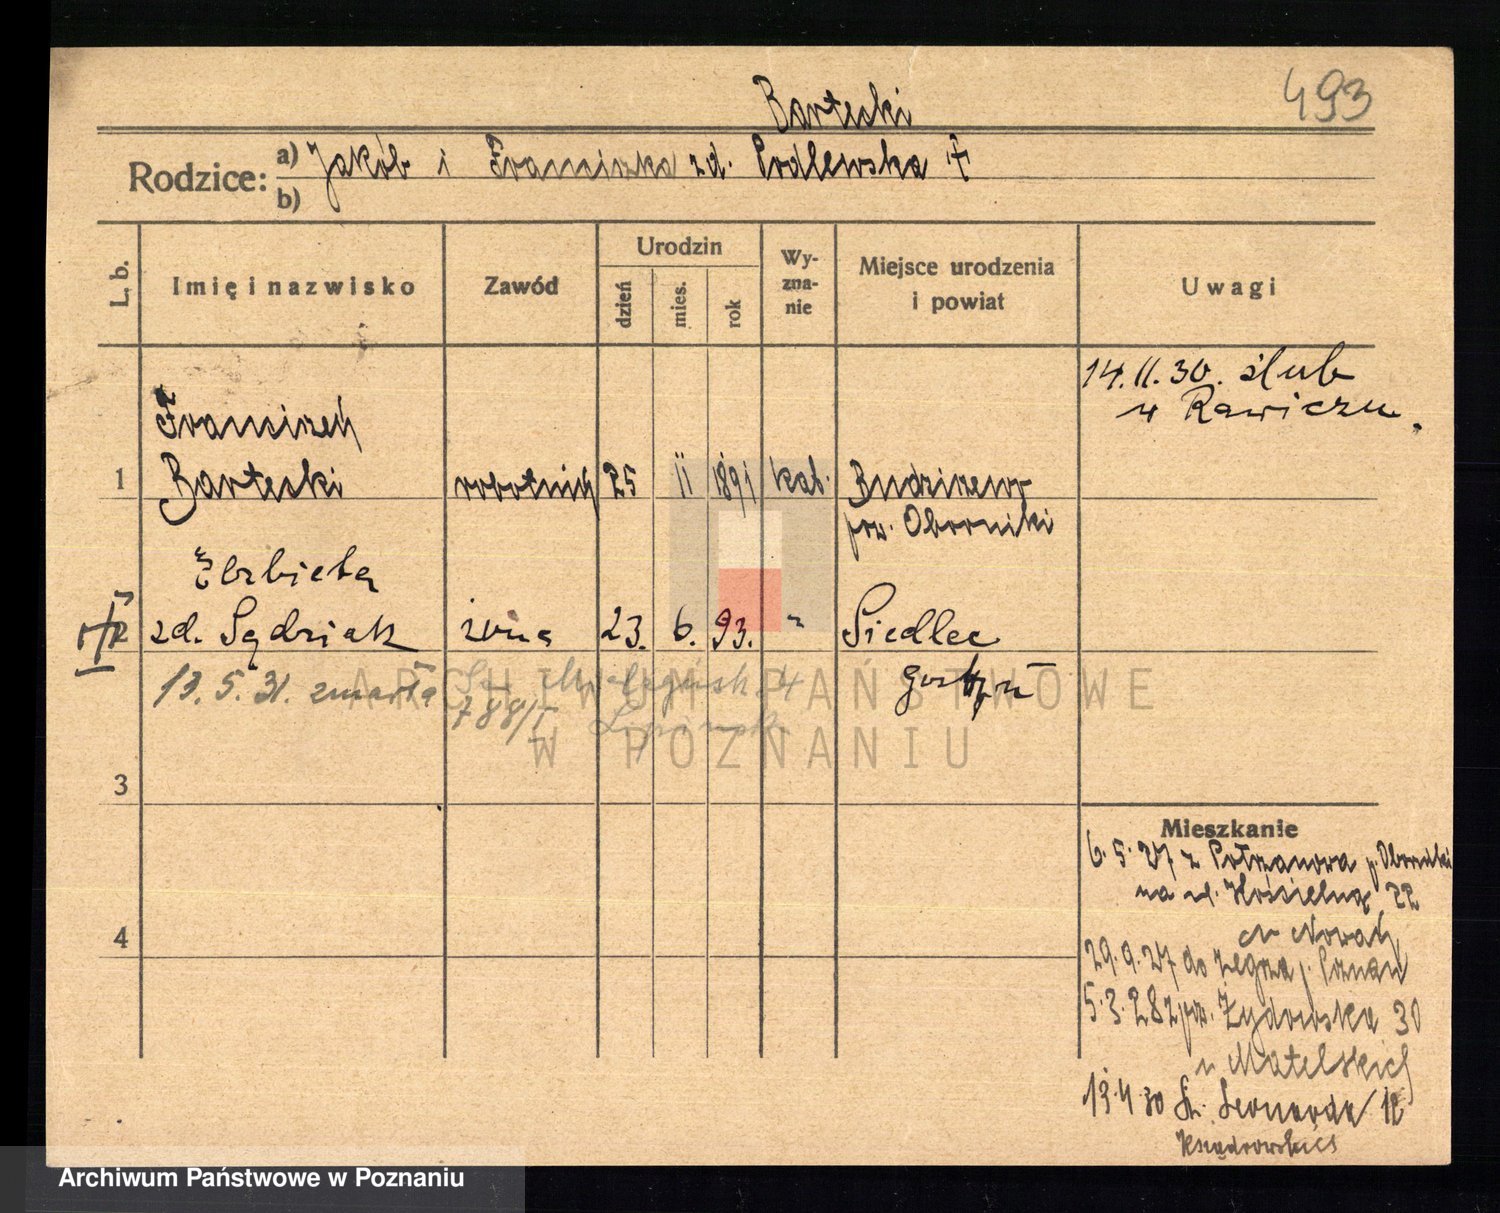 493
Barteski
Rodzice: a) Jakób i Franciszka zd. Podlewska †
b)
L. b.
Imię i nazwisko
Zawód
Urodzin
dzień
mies.
rok
Wy-
zna-
nie
Miejsce urodzenia
i powiat
Uwagi
14.II.30. ślub
w Rawiczu.
Franciszek
1 Barteski robotnik 25 II 1891 kat. Budziszewo
pow. Oborniki
Elżbieta
2 zd. Sędziak żona 23. 6. 93. " Siedlec
Gostyń
13.5.31. zmarła
788/I
3
4
Mieszkanie
6.5.27 z Potrzanowa p. Oborniki
na ul. Kościelną 22
u Nowak
29.9.27 do Żegrza p. Poznań
5.3.28 zpow. Żydowska 30
u Matelskich
13.4.30 Św. Leonarda 12
ARCHIWUM PAŃSTWOWE
W POZNANIU
Archiwum Państwowe w Poznaniu